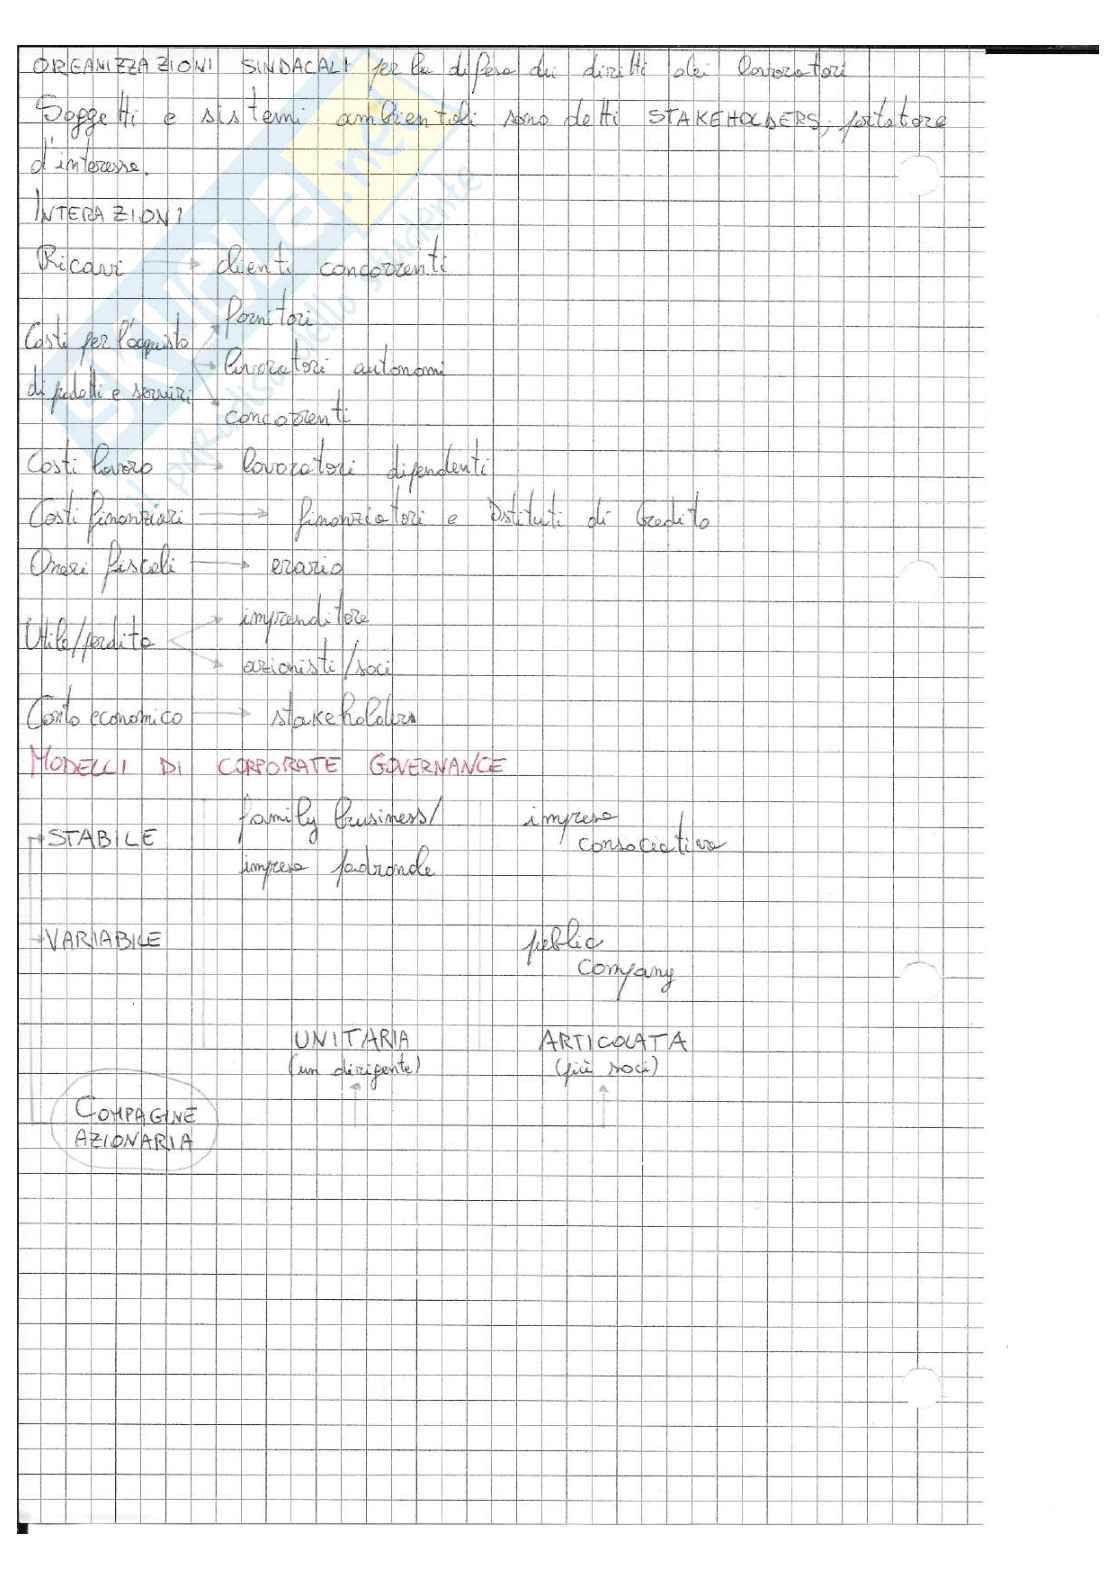 ORGANIZZAZIONI SINDACALI per la difesa dei diritti dei lavoratori
Soggetti e sistemi ambientali sono detti STAKEHOLDERS, portatore
d'interesse.
INTERAZIONI
Ricavi → clienti concorrenti
fornitori
Costi per l'acquisto
lavoratori autonomi
di prodotti e servizi
concorrenti
Costi lavoro → lavoratori dipendenti
Costi finanziari → finanziatori e Istituti di Credito
Oneri fiscali → erario
imprenditore
Utile/perdita
azionisti/soci
Conto economico → stakeholders
MODELLI DI CORPORATE GOVERNANCE
family business/ impresa
STABILE consociativa
impresa padronale
VARIABILE public
Company
UNITARIA ARTICOLATA
(un dirigente) (più soci)
COMPAGINE
AZIONARIA
SKUOLA.net
il paradiso dello studente